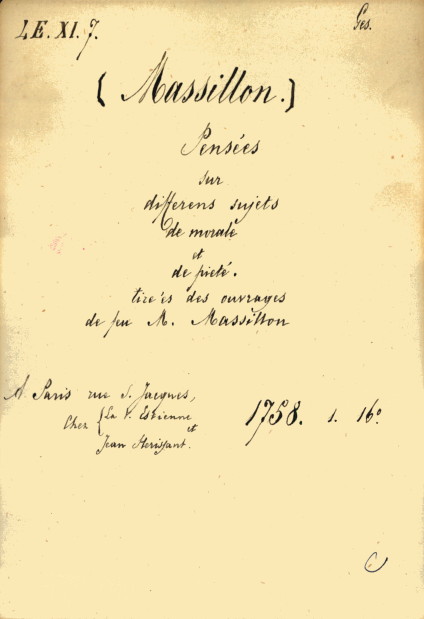 LE. XI. 7.
Ges.
(Massillon.)
Pensées
sur
differens sujets
de morale
et
de pieté.
tireés des ouvrages
de feu M. Massillon
A Paris rue S. Jacques,
Chez { La V. Estienne
et
Jean Herissant.
1758. 1. 16°
C